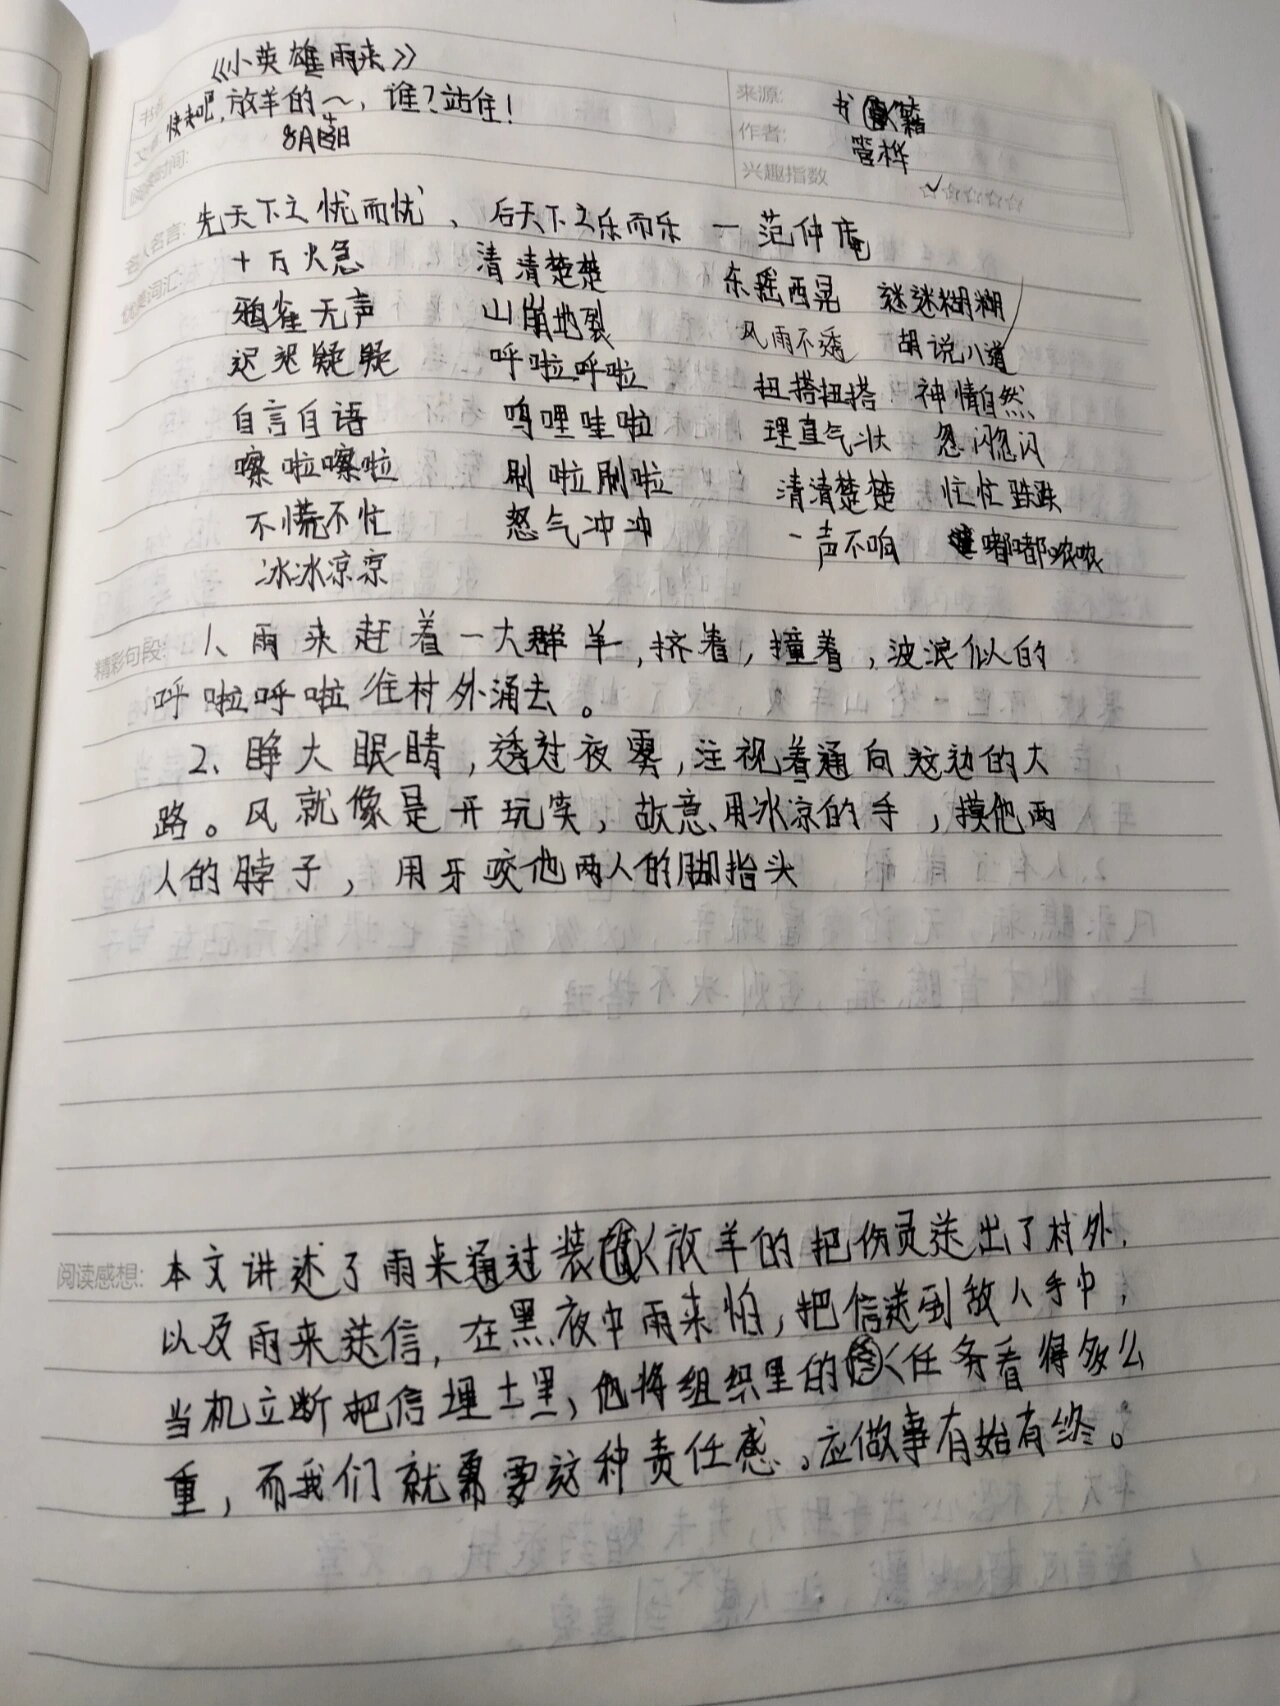 《小英雄雨来》
快来吧,放羊的～,谁?站住!
来源: 书籍
作者: 管桦
8月
阅读时间:
兴趣指数 ✓☆☆☆☆☆
名人名言: 先天下之忧而忧、后天下之乐而乐 — 范仲庵
优美词汇: 十万火急 清清楚楚 东摇西晃 迷迷糊糊
鸦雀无声 山崩地裂 风雨不透 胡说八道
迟迟疑疑 呼啦呼啦 扭搭扭搭 神情自然
自言自语 呜哩哇啦 理直气壮 忽闪忽闪
嚓啦嚓啦 刷啦刷啦 清清楚楚 忙忙跌跌
不慌不忙 怒气冲冲 一声不响 嘟嘟哝哝
冰冰凉凉
精彩句段: 1、雨来赶着一大群羊,挤着,撞着,波浪似的
呼啦呼啦往村外涌去。
2、睁大眼睛,透过夜雾,注视着通向这边的大
路。风就像是开玩笑,故意用冰凉的手,摸他两
人的脖子,用牙咬他两人的脚指头
阅读感想: 本文讲述了雨来通过装放羊的把伤员送出了村外,
以及雨来送信,在黑夜中雨来怕,把信送到敌人手中,
当机立断把信埋土里,他将组织里的任务看得多么
重,而我们就需要这种责任感。应做事有始有终。